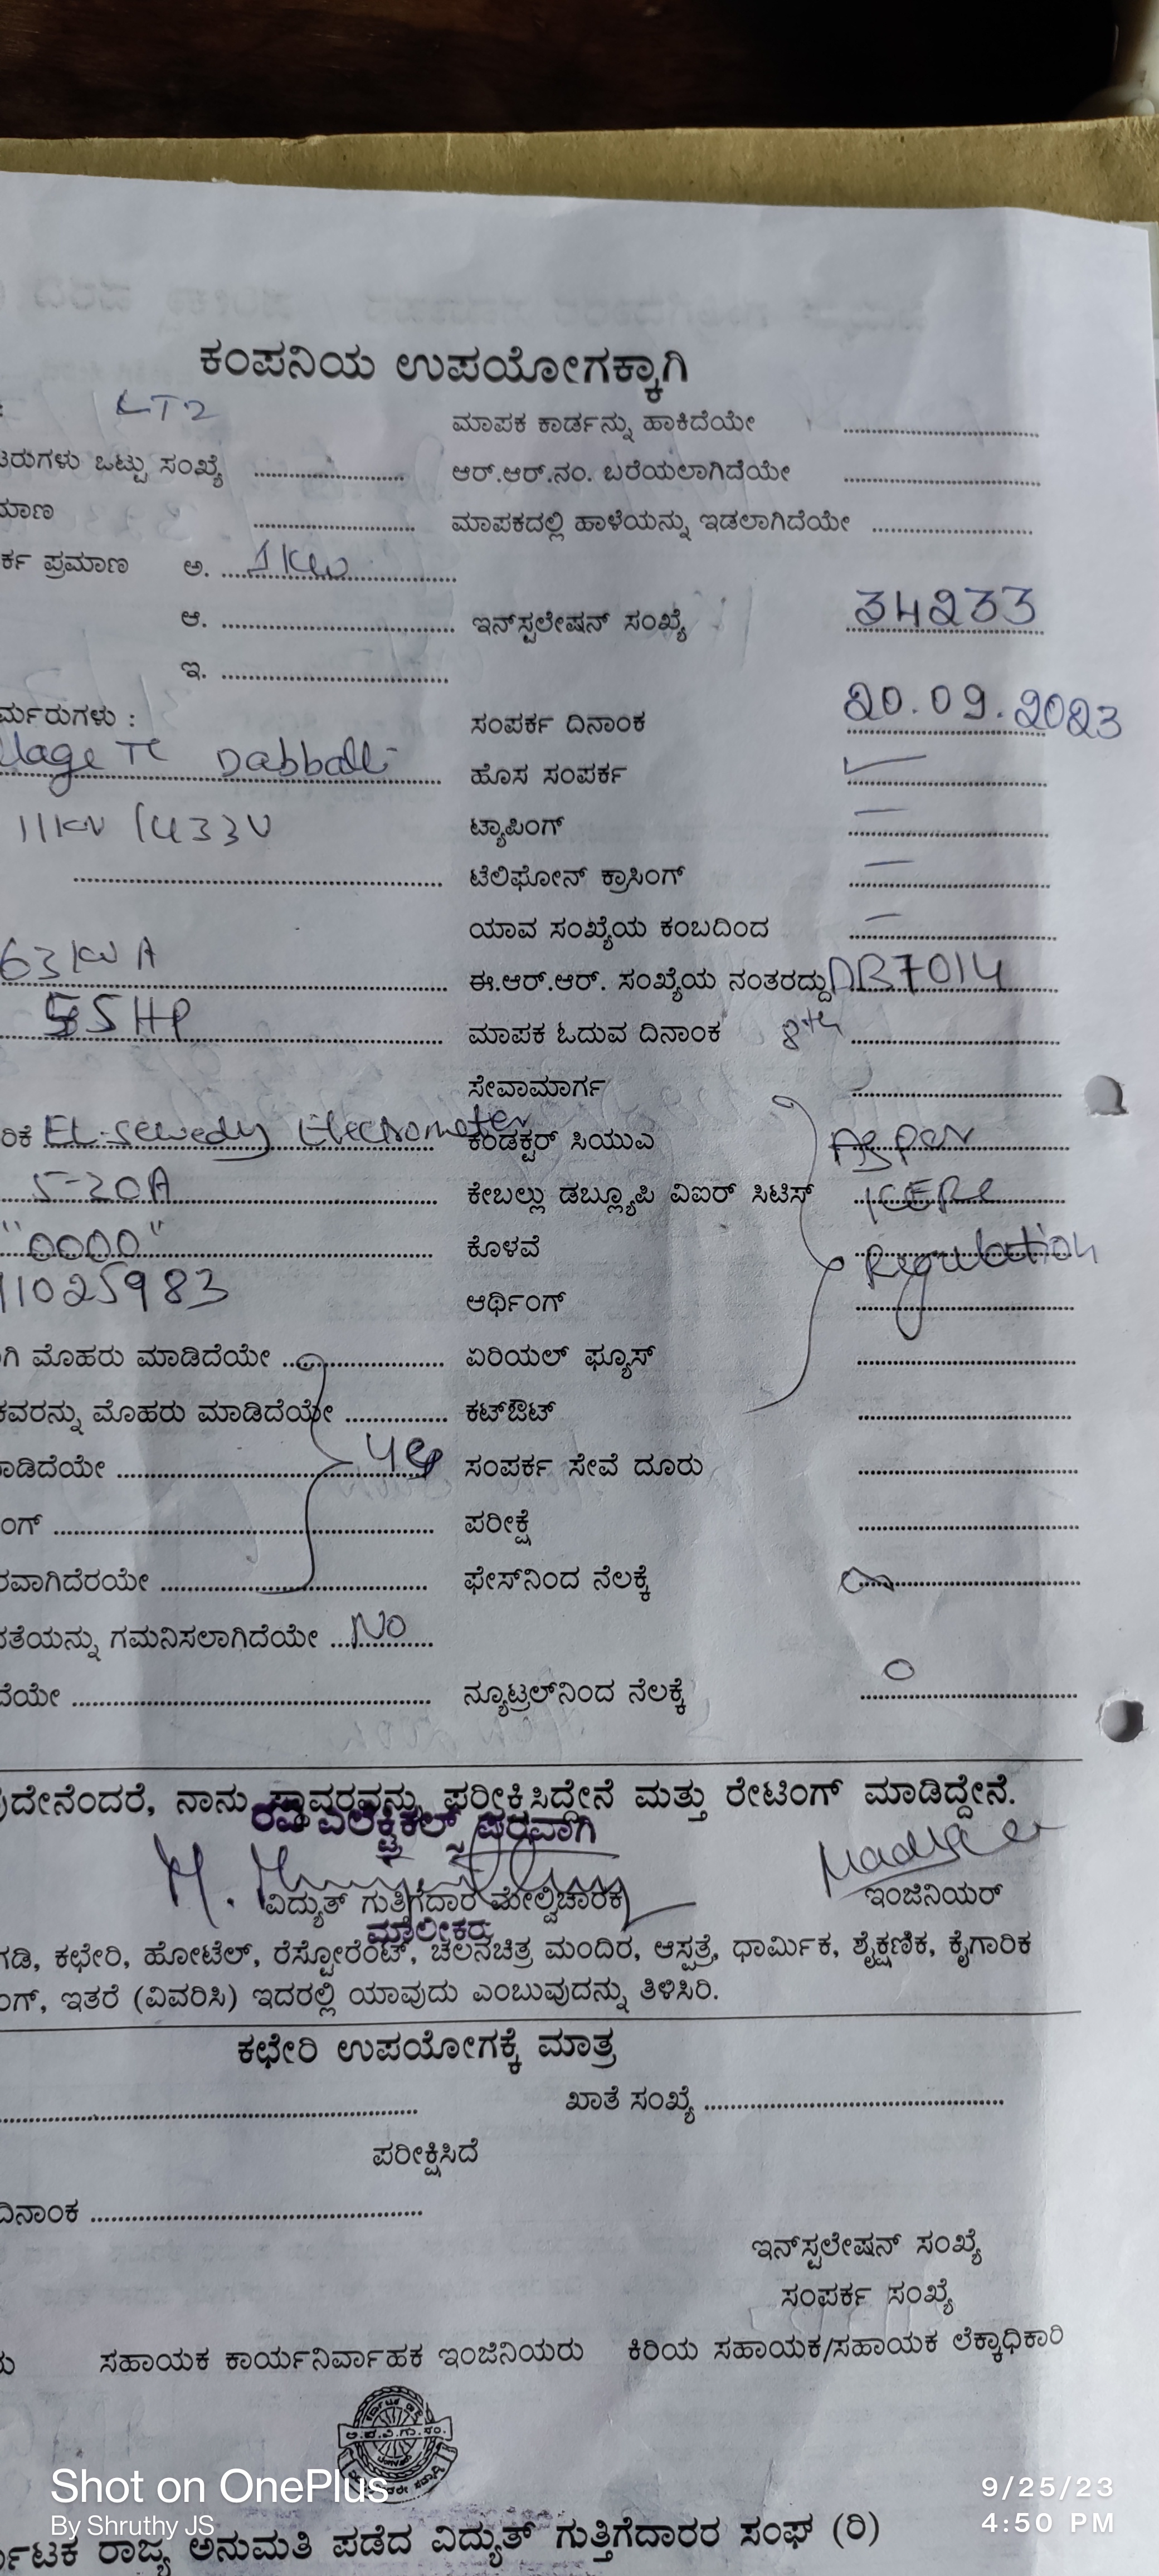 ಕಂಪನಿಯ ಉಪಯೋಗಕ್ಕಾಗಿ
: LT2 ಮಾಪಕ ಕಾರ್ಡನ್ನು ಹಾಕಿದೆಯೇ ....................
ಟರುಗಳು ಒಟ್ಟು ಸಂಖ್ಯೆ .................... ಆರ್.ಆರ್.ನಂ. ಬರೆಯಲಾಗಿದೆಯೇ ....................
ಮಾಣ .................... ಮಾಪಕದಲ್ಲಿ ಹಾಳೆಯನ್ನು ಇಡಲಾಗಿದೆಯೇ ....................
ರ್ಕ ಪ್ರಮಾಣ ಅ. 1KW
ಆ. .................... ಇನ್‌ಸ್ಟಲೇಷನ್ ಸಂಖ್ಯೆ 34233
ಇ. ....................
ರ್ಮರುಗಳು : ಸಂಪರ್ಕ ದಿನಾಂಕ 20.09.2023
llage TC Dabball ಹೊಸ ಸಂಪರ್ಕ ✓
11KV/433V ಟ್ಯಾಪಿಂಗ್ —
.................... ಟೆಲಿಫೋನ್ ಕ್ರಾಸಿಂಗ್ —
ಯಾವ ಸಂಖ್ಯೆಯ ಕಂಬದಿಂದ —
63KVA ಈ.ಆರ್.ಆರ್. ಸಂಖ್ಯೆಯ ನಂತರದ್ದು DB7014
55HP ಮಾಪಕ ಓದುವ ದಿನಾಂಕ 8th ....................
ಸೇವಾಮಾರ್ಗ ....................
ರಿಕೆ EL-Sewedy Electrometer ಕಂಡಕ್ಟರ್ ಸಿಯುಎ As per
5-20A ಕೇಬಲ್ಲು ಡಬ್ಲ್ಯೂಪಿ ವಿಐರ್ ಸಿಟಿಸ್ KERC
"0000" ಕೊಳವೆ Regulation
11025983 ಆರ್ಥಿಂಗ್ ....................
ಗಿ ಮೊಹರು ಮಾಡಿದೆಯೇ .................... ಏರಿಯಲ್ ಫ್ಯೂಸ್ ....................
ಕವರನ್ನು ಮೊಹರು ಮಾಡಿದೆಯೇ .................... ಕಟ್‌ಔಟ್ ....................
ಾಡಿದೆಯೇ .................... ಸಂಪರ್ಕ ಸೇವೆ ದೂರು ....................
ಂಗ್ .................... ಪರೀಕ್ಷೆ ....................
ರವಾಗಿದೆರಯೇ .................... ಫೇಸ್‌ನಿಂದ ನೆಲಕ್ಕೆ ....................
ತೆಯನ್ನು ಗಮನಿಸಲಾಗಿದೆಯೇ No
ದೆಯೇ .................... ನ್ಯೂಟ್ರಲ್‌ನಿಂದ ನೆಲಕ್ಕೆ 0
ುದೇನೆಂದರೆ, ನಾನು ಸ್ಥಾವರವನ್ನು ಪರೀಕ್ಷಿಸಿದ್ದೇನೆ ಮತ್ತು ರೇಟಿಂಗ್ ಮಾಡಿದ್ದೇನೆ.
ರವಿ ಎಲೆಕ್ಟ್ರಿಕಲ್ಸ್ ಪರವಾಗಿ
ವಿದ್ಯುತ್ ಗುತ್ತಿಗೆದಾರ ಮೇಲ್ವಿಚಾರಕ ಇಂಜಿನಿಯರ್
ಮಾಲೀಕರು
ಗಡಿ, ಕಛೇರಿ, ಹೋಟೆಲ್, ರೆಸ್ಟೋರೆಂಟ್, ಚಲನಚಿತ್ರ ಮಂದಿರ, ಆಸ್ಪತ್ರೆ, ಧಾರ್ಮಿಕ, ಶೈಕ್ಷಣಿಕ, ಕೈಗಾರಿಕ
ಂಗ್, ಇತರೆ (ವಿವರಿಸಿ) ಇದರಲ್ಲಿ ಯಾವುದು ಎಂಬುವುದನ್ನು ತಿಳಿಸಿರಿ.
ಕಛೇರಿ ಉಪಯೋಗಕ್ಕೆ ಮಾತ್ರ
.................... ಖಾತೆ ಸಂಖ್ಯೆ ....................
ಪರೀಕ್ಷಿಸಿದೆ
ದಿನಾಂಕ ....................
ಇನ್‌ಸ್ಟಲೇಷನ್ ಸಂಖ್ಯೆ
ಸಂಪರ್ಕ ಸಂಖ್ಯೆ
ಸಹಾಯಕ ಕಾರ್ಯನಿರ್ವಾಹಕ ಇಂಜಿನಿಯರು ಕಿರಿಯ ಸಹಾಯಕ/ಸಹಾಯಕ ಲೆಕ್ಕಾಧಿಕಾರಿ
ಅ.ಪ.ವಿ.ಗು.ಸಂ.
Shot on OnePlus
By Shruthy JS
9/25/23
4:50 PM
ರ್ನಾಟಕ ರಾಜ್ಯ ಅನುಮತಿ ಪಡೆದ ವಿದ್ಯುತ್ ಗುತ್ತಿಗೆದಾರರ ಸಂಘ (ರಿ)